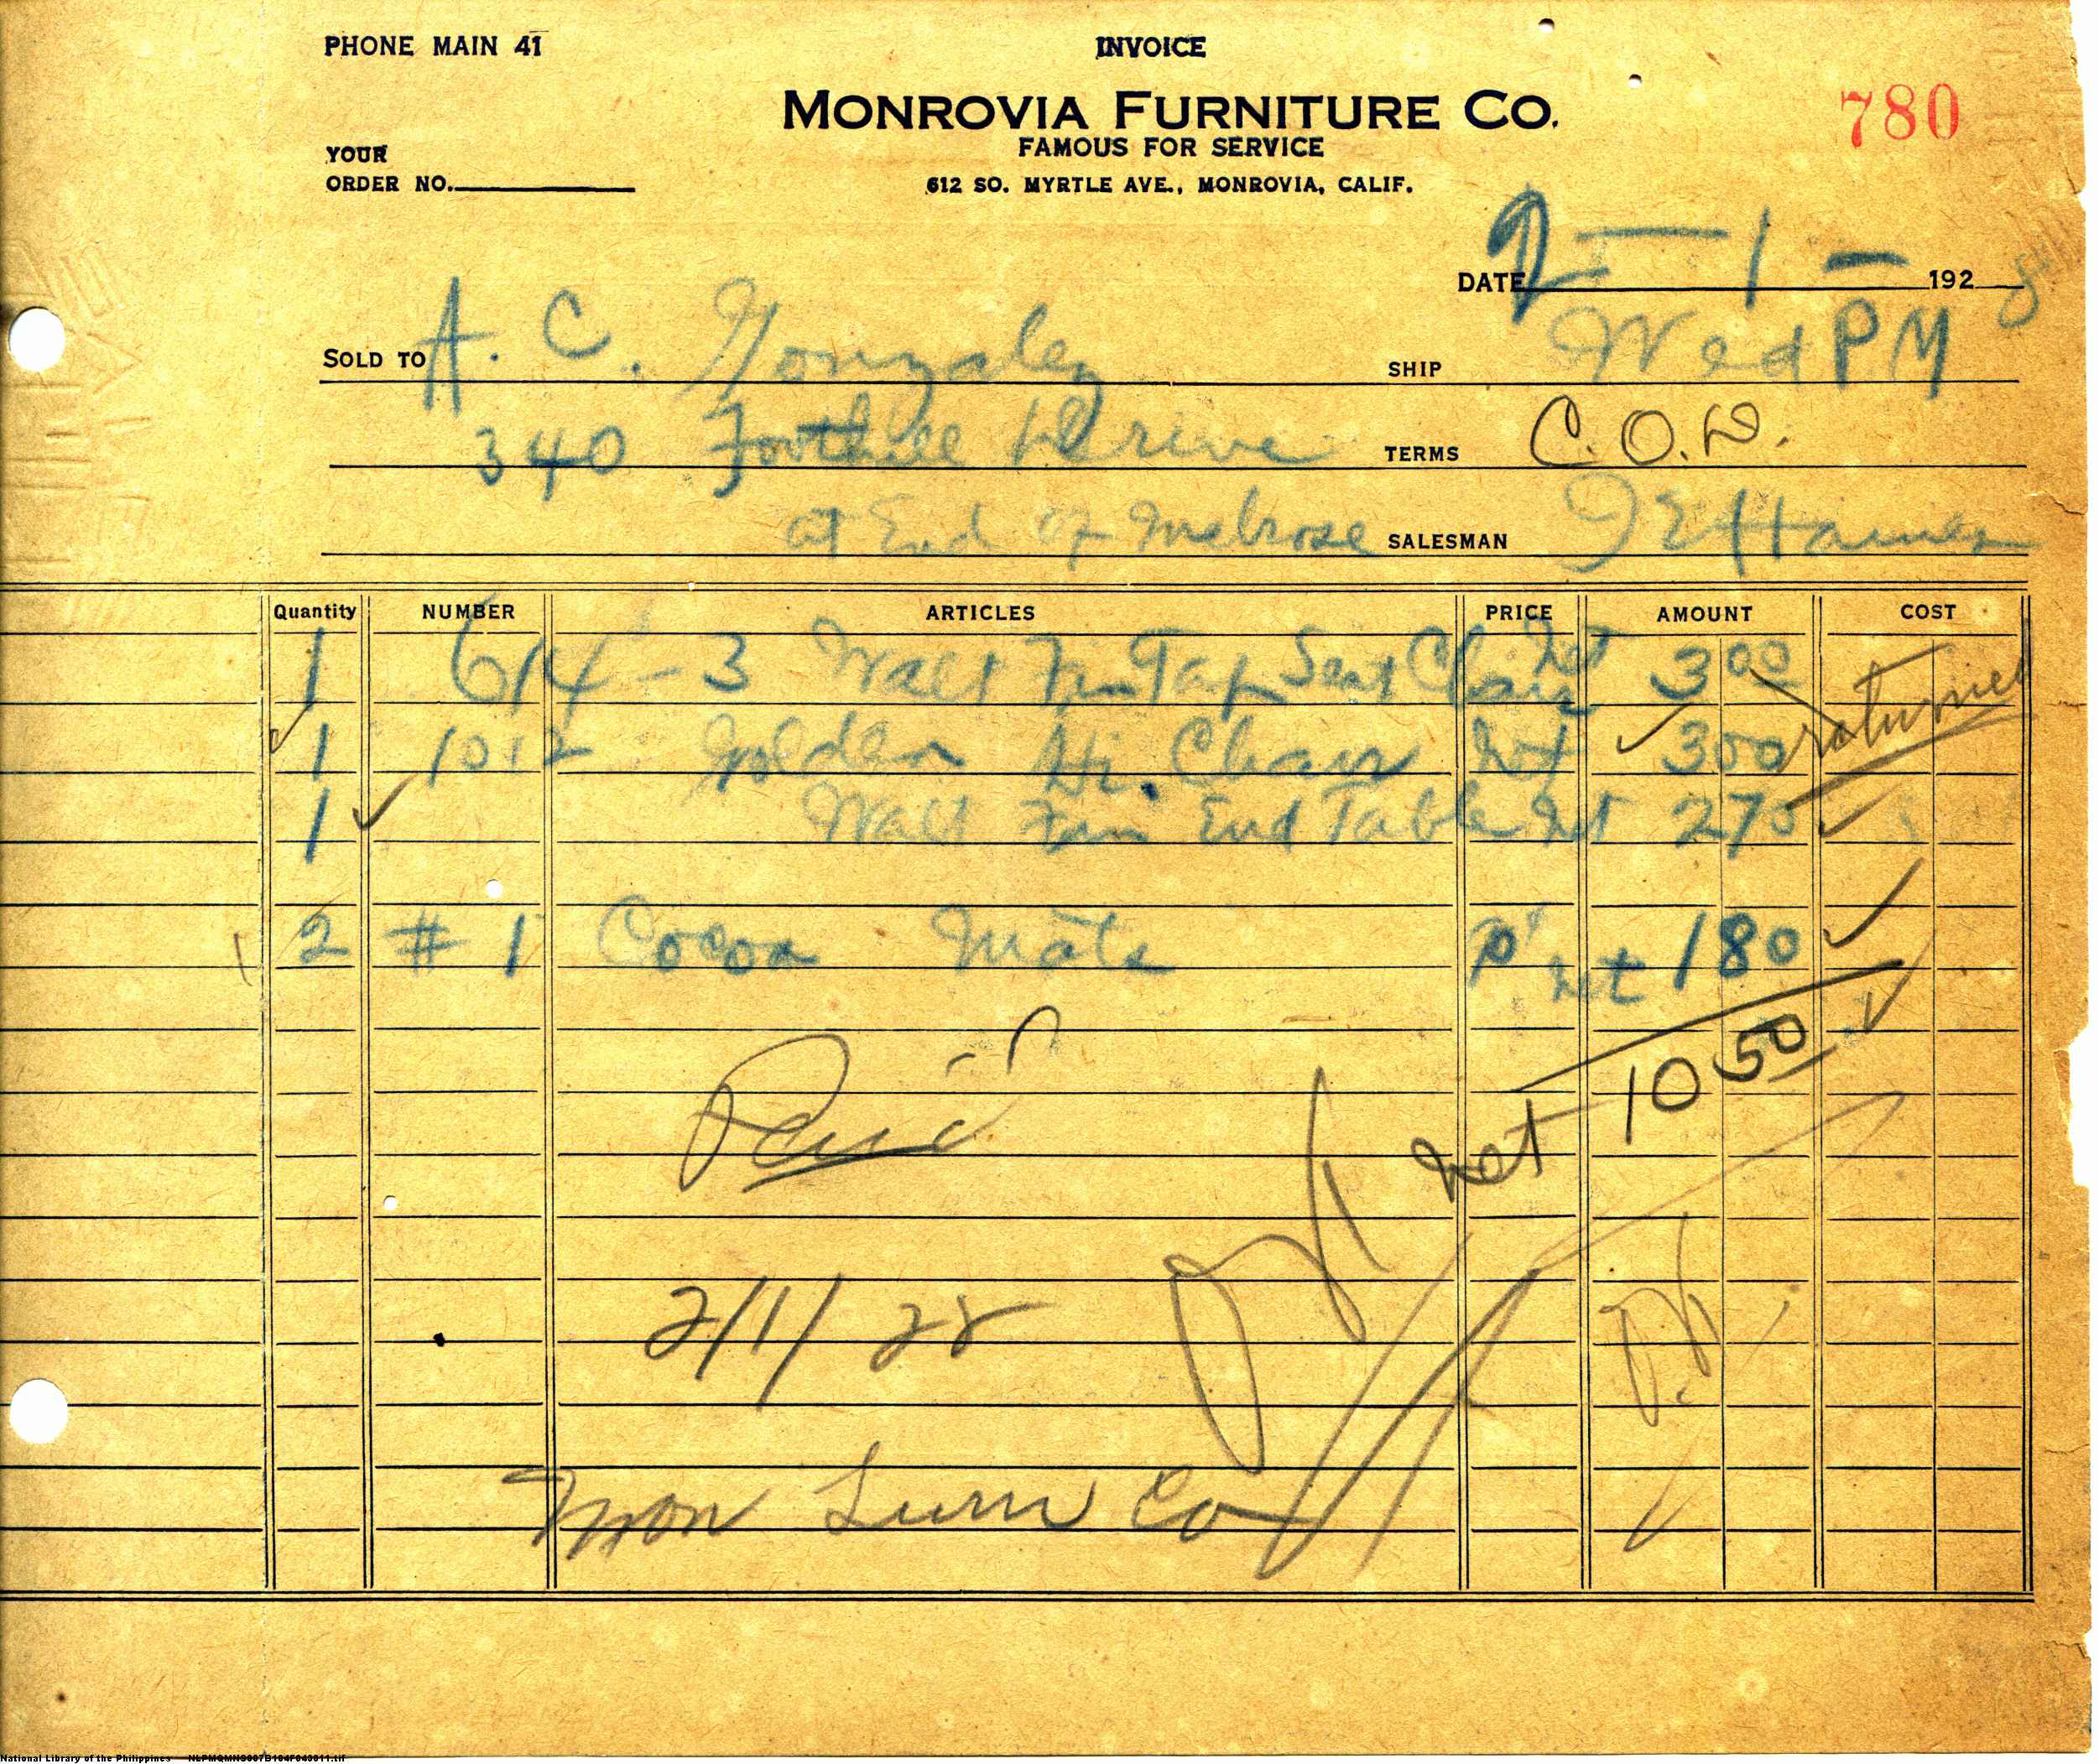 PHONE MAIN 41
INVOICE
MONROVIA FURNITURE CO.
780
FAMOUS FOR SERVICE
YOUR
ORDER NO.
612 SO. MYRTLE AVE., MONROVIA, CALIF.
DATE 2 - 1 - 192 8
SOLD TO A. C. Gonzalez SHIP Wed PM
340 Foothill Drive TERMS C.O.D.
at End of Melrose SALESMAN
Quantity NUMBER ARTICLES PRICE AMOUNT COST
1 614 - 3 Walt Fin Tap Seat Chair Net 3 00
returned
1 1012 Golden Hi. Chair Net 3 00
1 Walt Fin End Table Net 2 75
2 # 1 Cocoa Mats pr Net 1 80
Net 10 50
Paid
OK
2/1/28
OK
Mon Furn Co
National Library of the Philippines